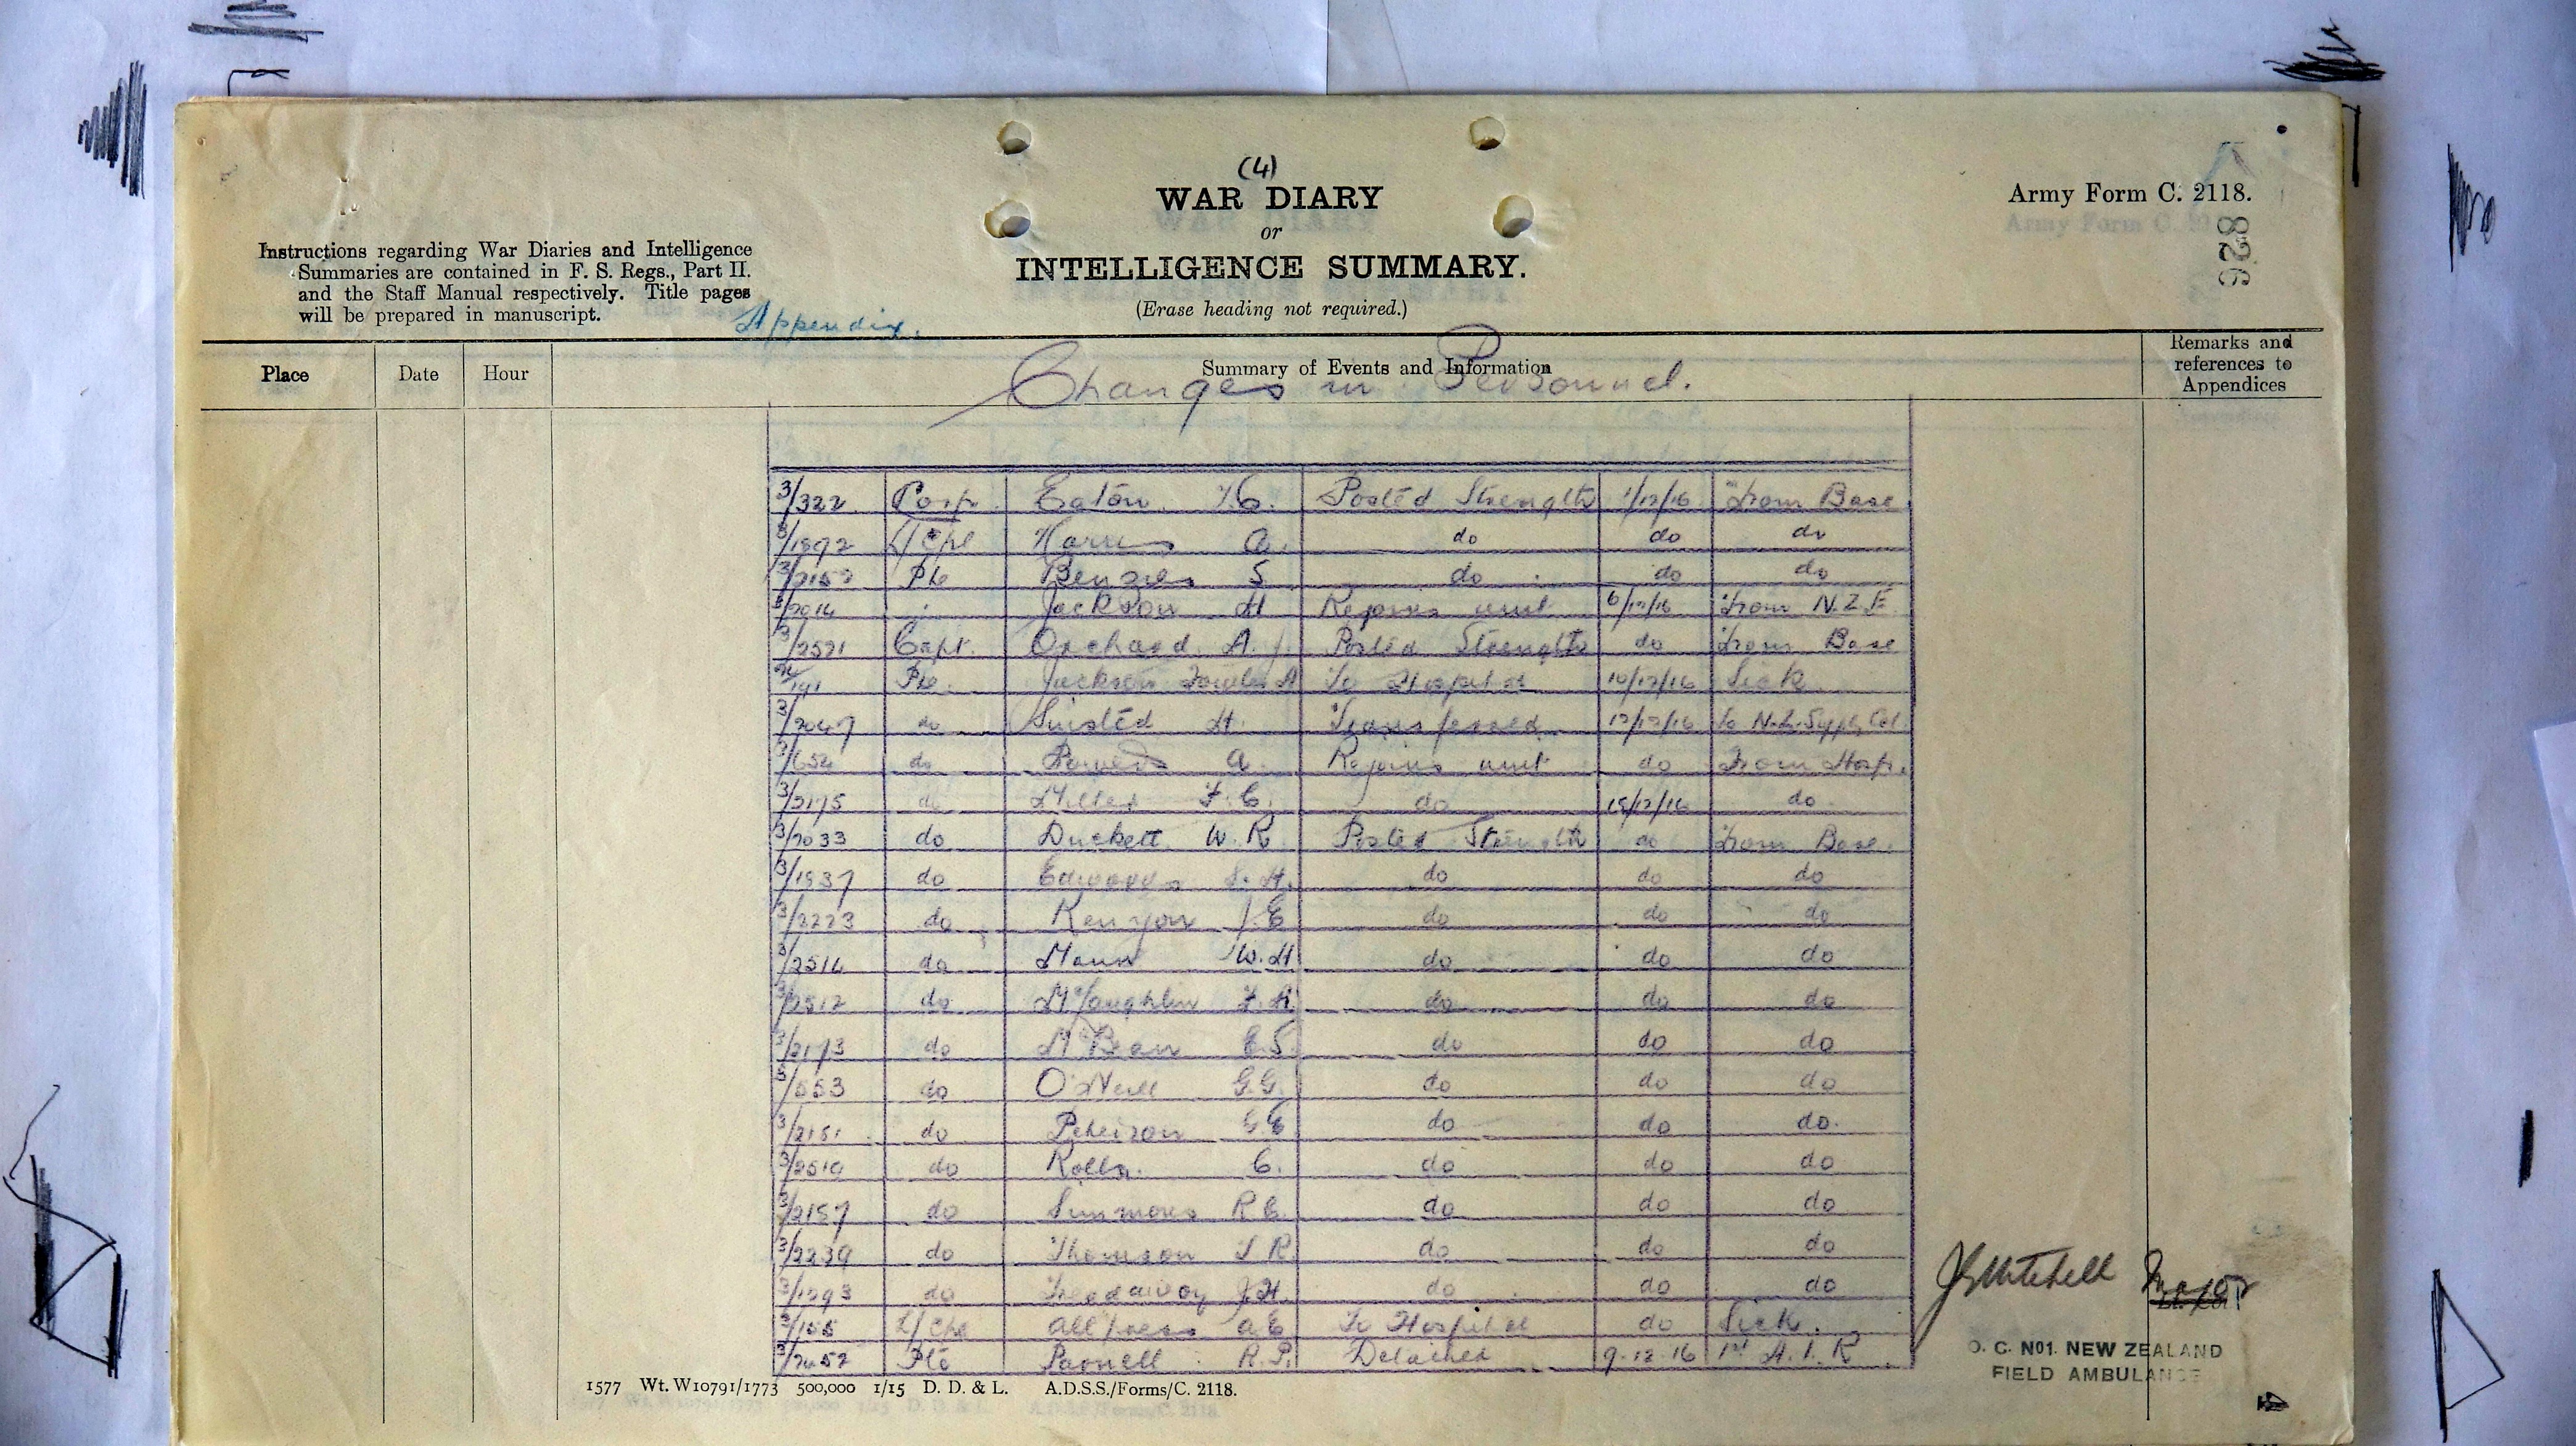 (4)
WAR DIARY
or
INTELLIGENCE SUMMARY.
(Erase heading not required.)
Army Form C. 2118.
826
Instructions regarding War Diaries and Intelligence
Summaries are contained in F. S. Regs., Part II.
and the Staff Manual respectively. Title pages
will be prepared in manuscript.
Appendix.
Place Date Hour Summary of Events and Information Remarks and references to Appendices
Changes in Personnel.
3/322 Corp Eaton Posted Strength 1/12/16 From Base
L/Cpl Harris A. do do do
Pte Benzies S do do do
Jackson H Rejoins unit 6/12/16 From N.Z.E
3/2521 Capt. Orchard A. Posted Strength do From Base
Pte. Jackson Fowler A To Hospital 10/12/16 Sick
3/2047 do H. Transferred 12/12/16 to N.Z. Supply Col.
3/654 do A. Rejoins unit do From Hosp.
3/2175 do Miller F.C. do 15/12/16 do
3/2033 do Duckett W.R Posted Strength do From Base.
3/1937 do Edwards S.H. do do do
3/2223 do Kenyon J.E do do do
3/2516 do Mann W.H do do do
3/2512 do McLaughlin F.R. do do do
3/2173 do McBean E.S do do do
3/553 do O'Neill G.G. do do do
3/2151 do do do do.
3/2519 do Rolls. C. do do do
3/2157 do Simmons R C. do do do
3/2239 do Thomson T R. do do do
do Treadaway J.H. do do do
3/155 L/Cpl Allpress A E To Hospital do Sick.
3/2652 Pte Parnell R.P. Detached 9-12-16 1st A.I.R
Mitchell Major
O. C. No1. NEW ZEALAND
FIELD AMBULANCE
1577 Wt. W10791/1773 500,000 1/15 D. D. & L. A.D.S.S./Forms/C. 2118.